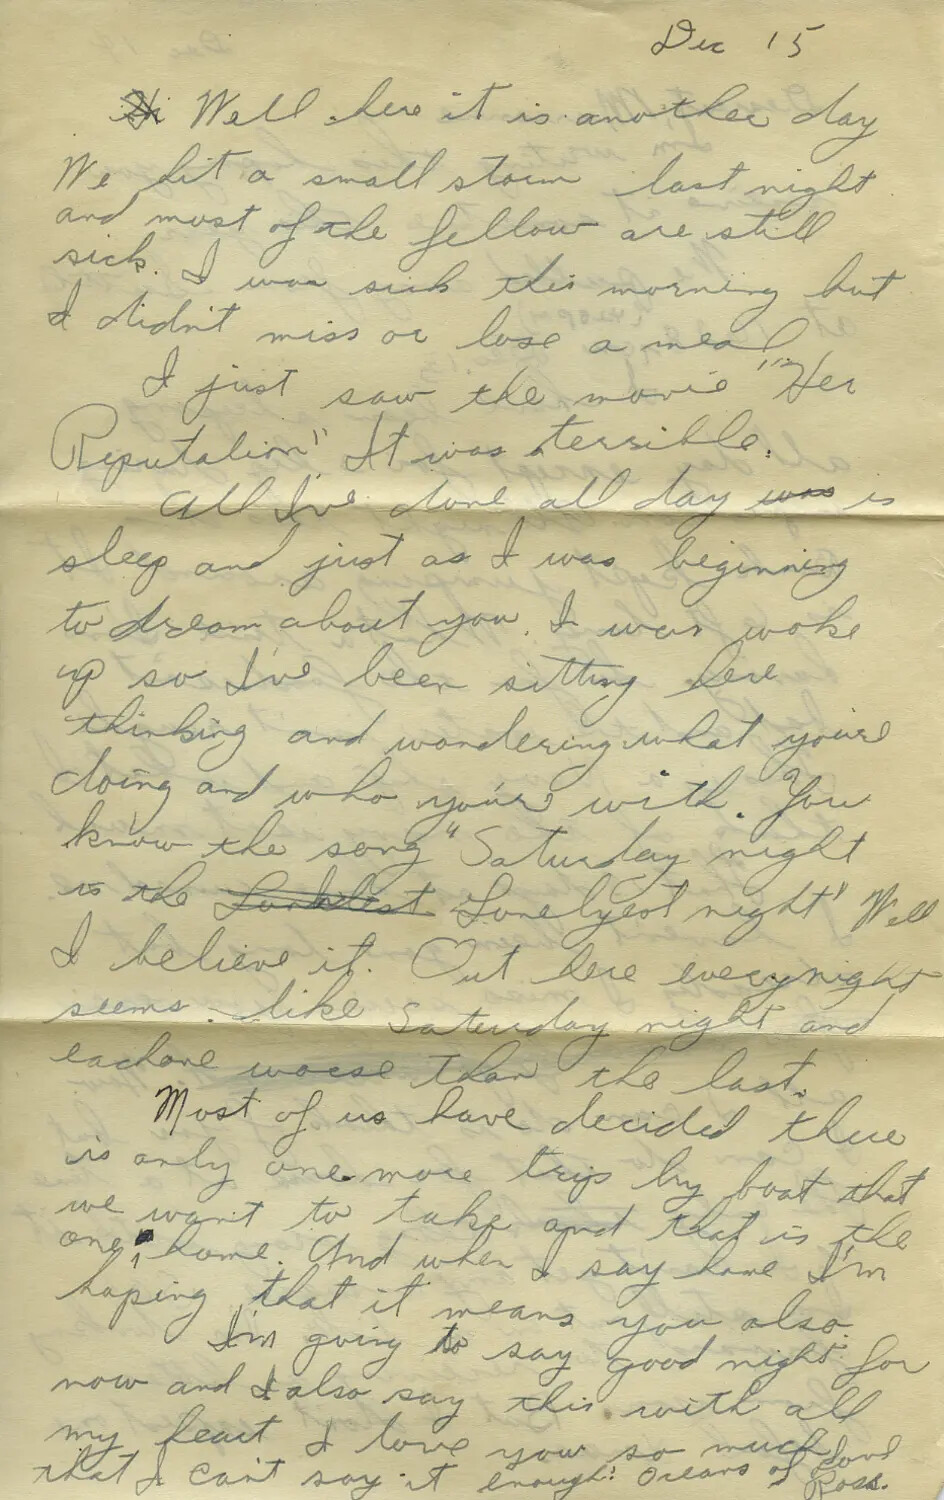 Dec 15
Well here it is another day
We hit a small storm last night
and most of the fellow are still
sick. I was sick this morning but
I didn't miss or lose a meal
I just saw the movie "Her
Reputation" It was terrible.
All I've done all day was is
sleep and just as I was beginning
to dream about you. I was woke
up so I've been sitting here
thinking and wondering what you're
doing and who you're with. You
know the song "Saturday night
is the Lonelyest night" Well
I believe it. Out here everynight
seems like Saturday night and
eachone worse than the last.
Most of us have decided there
is only one more trip by boat that
we want to take and that is the
one home. And when I say home I'm
hoping that it means you also.
I'm going to say good night for
now and I also say this with all
my heart I love you so much
that I can't say it enough. Oceans of Love
Ross.